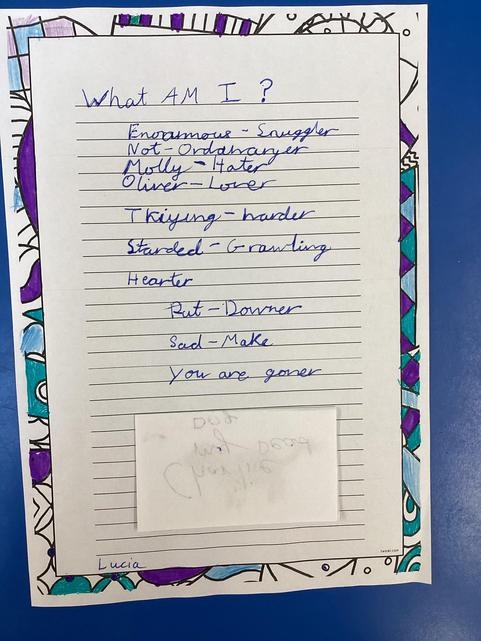 What AM I ?
Enoramous - Snuggler
Not - Ordanaryer
Molly - Hater
Oliver - Lover
Tkiying - harder
Starded - Grawling
Hearter
Put - Downer
Sad - Make
You are goner
Lucia